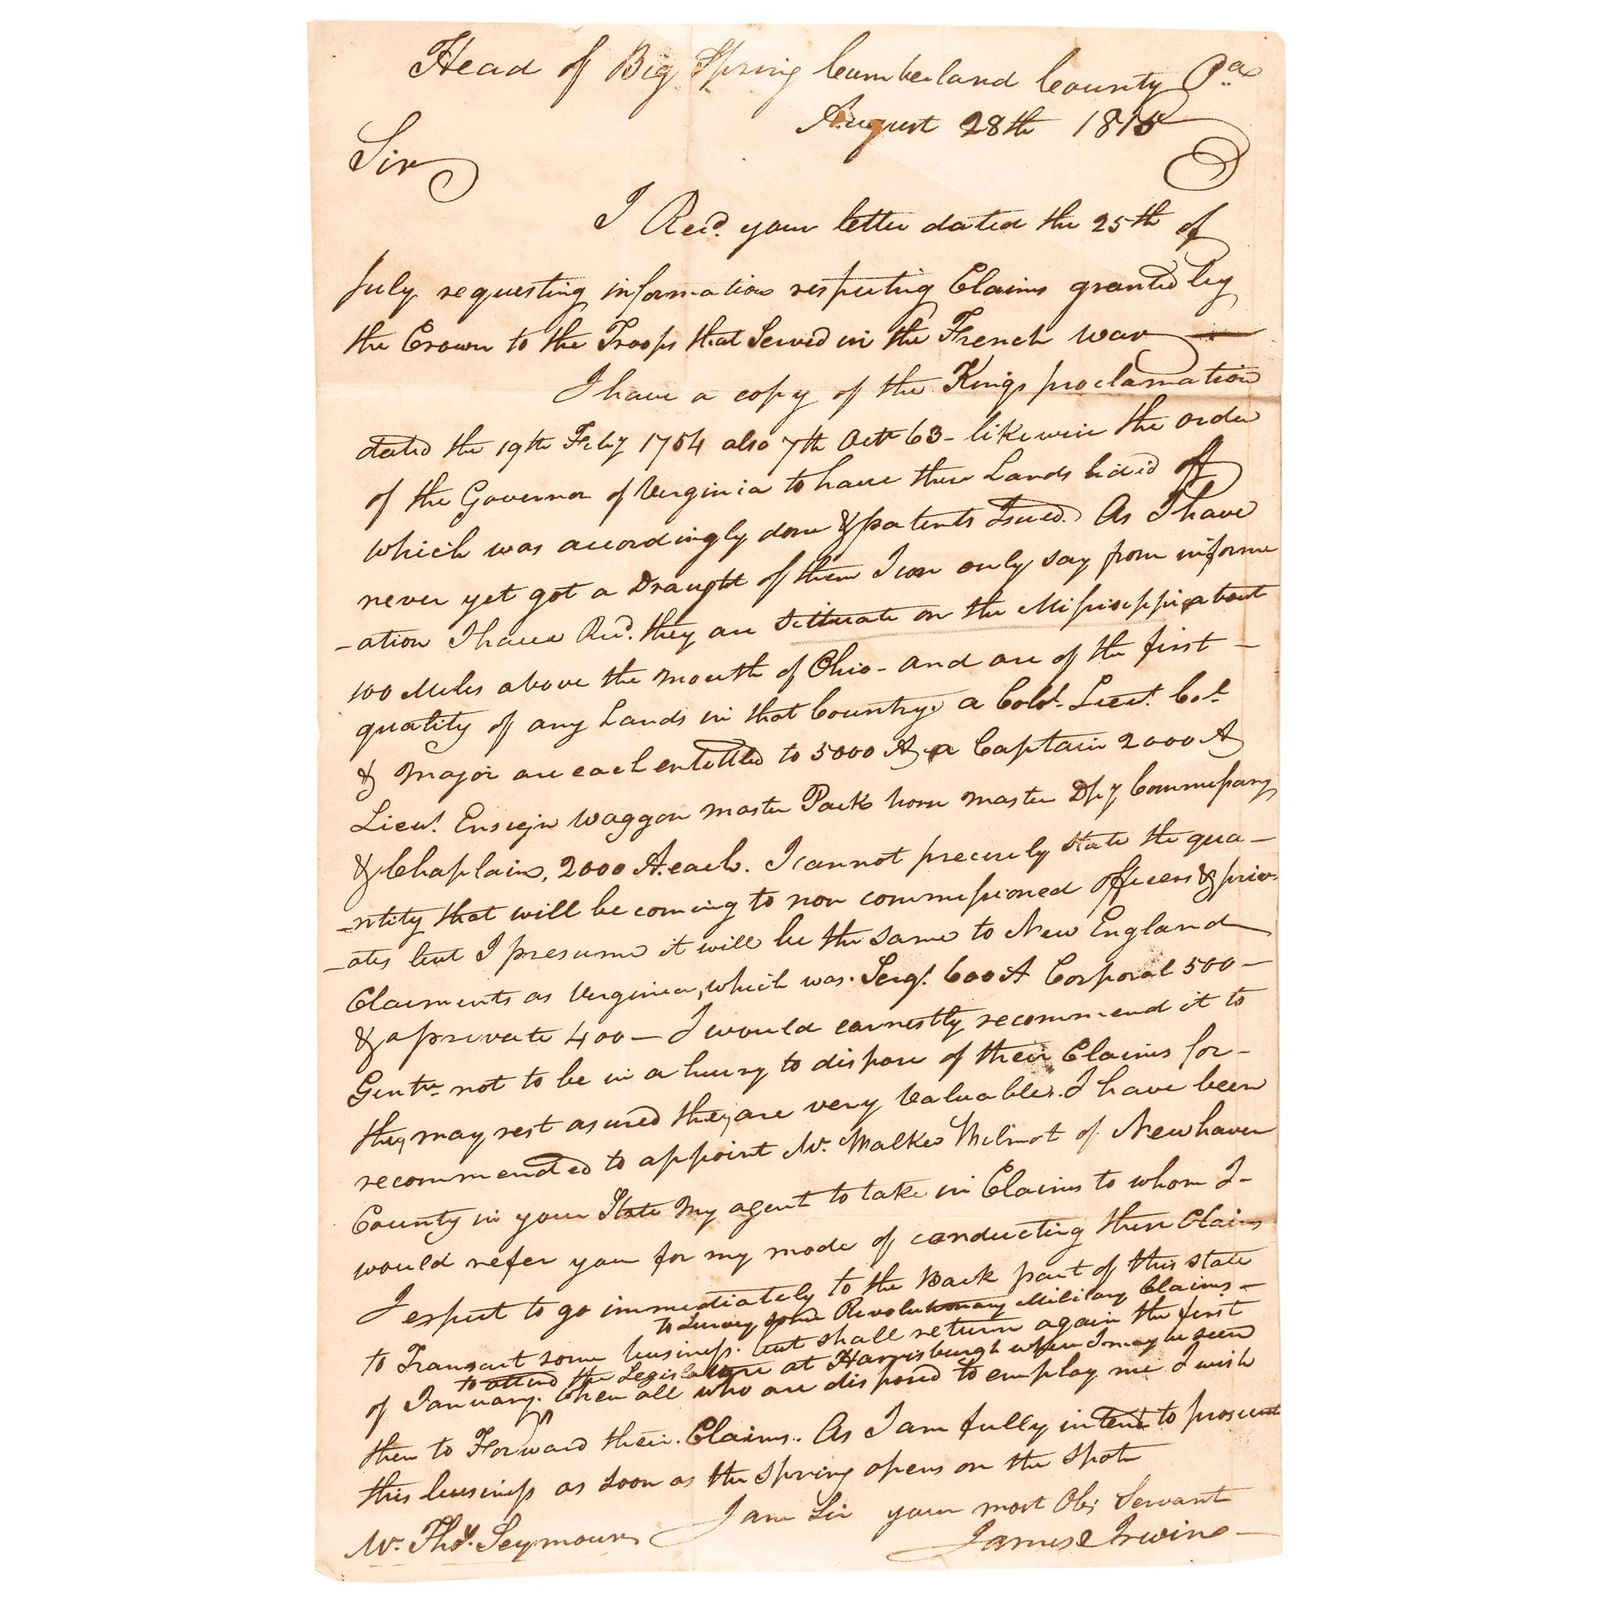 Head of Big Spring Cumberland County Pa
August 28th 1815
Sir
I Recd. your letter dated the 25th of
July requesting information respecting Claims granted by
the Crown to the Troops that Served in the French war
I have a copy of the Kings proclamation
dated the 19th Feby 1754 also 7th Octr 63 - likewise the order
of the Governor of Verginia to have these Lands laid off
which was accordingly done & patents Isued. As I have
never yet got a Draught of them I can only say from inform
-ation I have Recd. they are Sittuate on the Missisippi about
100 Miles above the mouth of Ohio - and are of the first -
quality of any Lands in that Country. a Colol. Lieut. Col.
& Major are each entittled to 5000 A a Captain 2000 A
Lieut. Ensign Waggon master Pack horse master Dpy Commissary
& Chaplain, 2000 A. each. I cannot precisely state the qua-
-ntity that will be coming to non commissioned officers & priv-
-ates but I presume it will be the same to New England
Claiments as Verginia, which was. Sergt. 600 A Corporal 500 -
& a private 400 - I would earnestly recommend it to
Gentn. not to be in a hurry to dispose of their Claims for -
they may rest asured they are very valuable. I have been
recommended to appoint Mr. Walker Wilmot of Newhaven
County in your State my agent to take in Claims to whom I -
would refer you for my mode of conducting these Claims
I expect to go immediately to the Back part of this state
to Survey some Revolutionary Military Claims -
to Transact some business. but shall return again the first
to attend the Legislature at Harrisburgh when I may be seen
of January. When all who are disposed to employ me I wish
then to Forward their. Claims. As I am fully intend to prosecute
this business as soon as the Spring opens on the spot
I am Sir your most Obt Servant
Mr. Thos. Seymour James Irwine